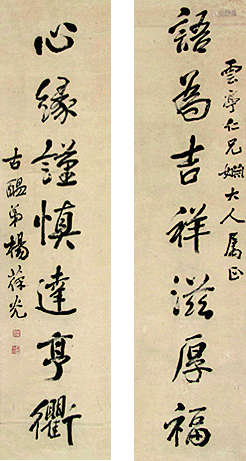 雲亭仁兄姻大人属正
語為吉祥滋厚福
心緣謹慎達亨衢
古醖弟楊葆光